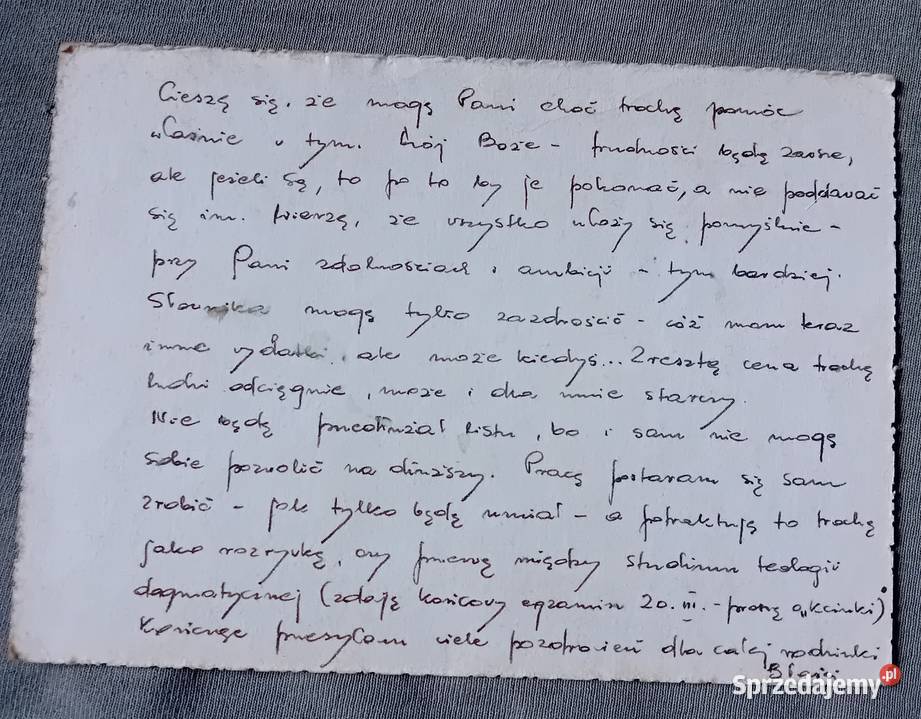 Cieszę się, że mogę Pani choć trochę pomóc
właśnie w tym. Mój Boże - trudności będą zawsze,
ale jeżeli są, to po to by je pokonać, a nie poddawać
się im. Wierzę, że wszystko ułoży się pomyślnie -
przy Pani zdolnościach i ambicji - tym bardziej.
Słownika mogę tylko zazdrościć - cóż mam teraz
inne wydatki, ale może kiedyś... Zresztą cena trochę
ludzi odciągnie, może i dla mnie starczy.
Nie będę przedłużał listu, bo i sam nie mogę
sobie pozwolić na dłuższy. Pracę postaram się sam
zrobić - jak tylko będę umiał - a potraktuję to trochę
jako rozrywkę, czy przerwę między studium teologii
dogmatycznej (zdaję końcowy egzamin 20.III. - proszę o „kciuki”).
Kończąc przesyłam wiele pozdrowień dla całej rodzinki
Sprzedajemy.pl